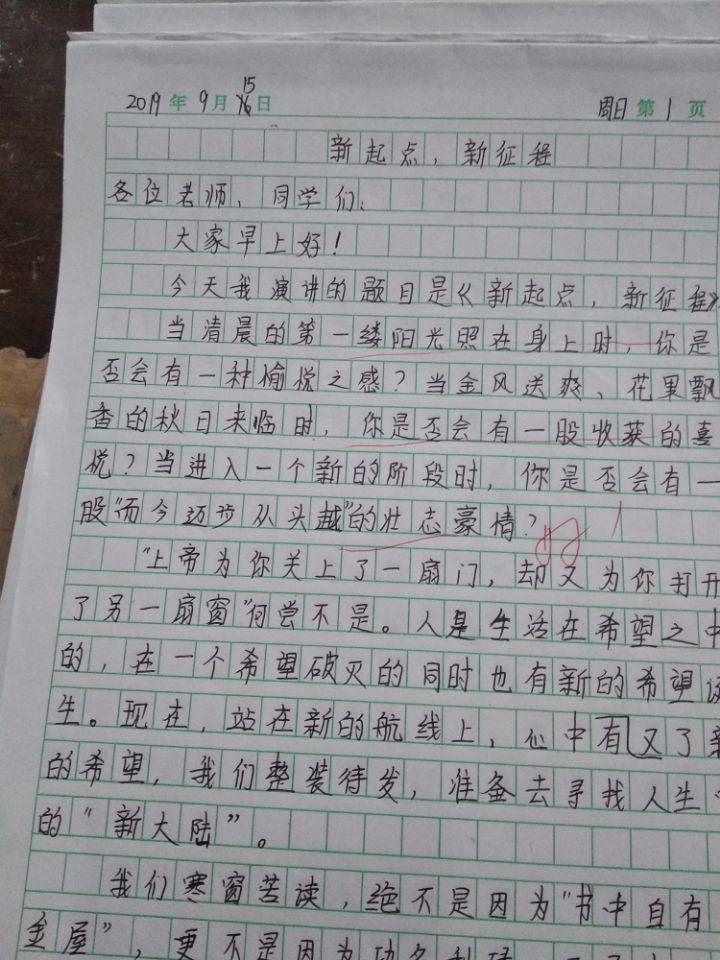 2019年9月15日 周日 第1页
新起点，新征程
各位老师、同学们：
大家早上好！
今天我演讲的题目是《新起点，新征程》
当清晨的第一缕阳光照在身上时，你是
否会有一种愉悦之感？当金风送爽、花果飘
香的秋日来临时，你是否会有一股收获的喜
悦？当进入一个新的阶段时，你是否会有一
股“而今迈步从头越”的壮志豪情？
“上帝为你关上了一扇门，却又为你打开
了另一扇窗”何尝不是。人是生活在希望之中
的，在一个希望破灭的同时也有新的希望
生。现在，站在新的航线上，心中有又了新
的希望，我们整装待发，准备去寻找人生
的“新大陆”。
我们寒窗苦读，绝不是因为“书中自有
金屋”，更不是因为功名利